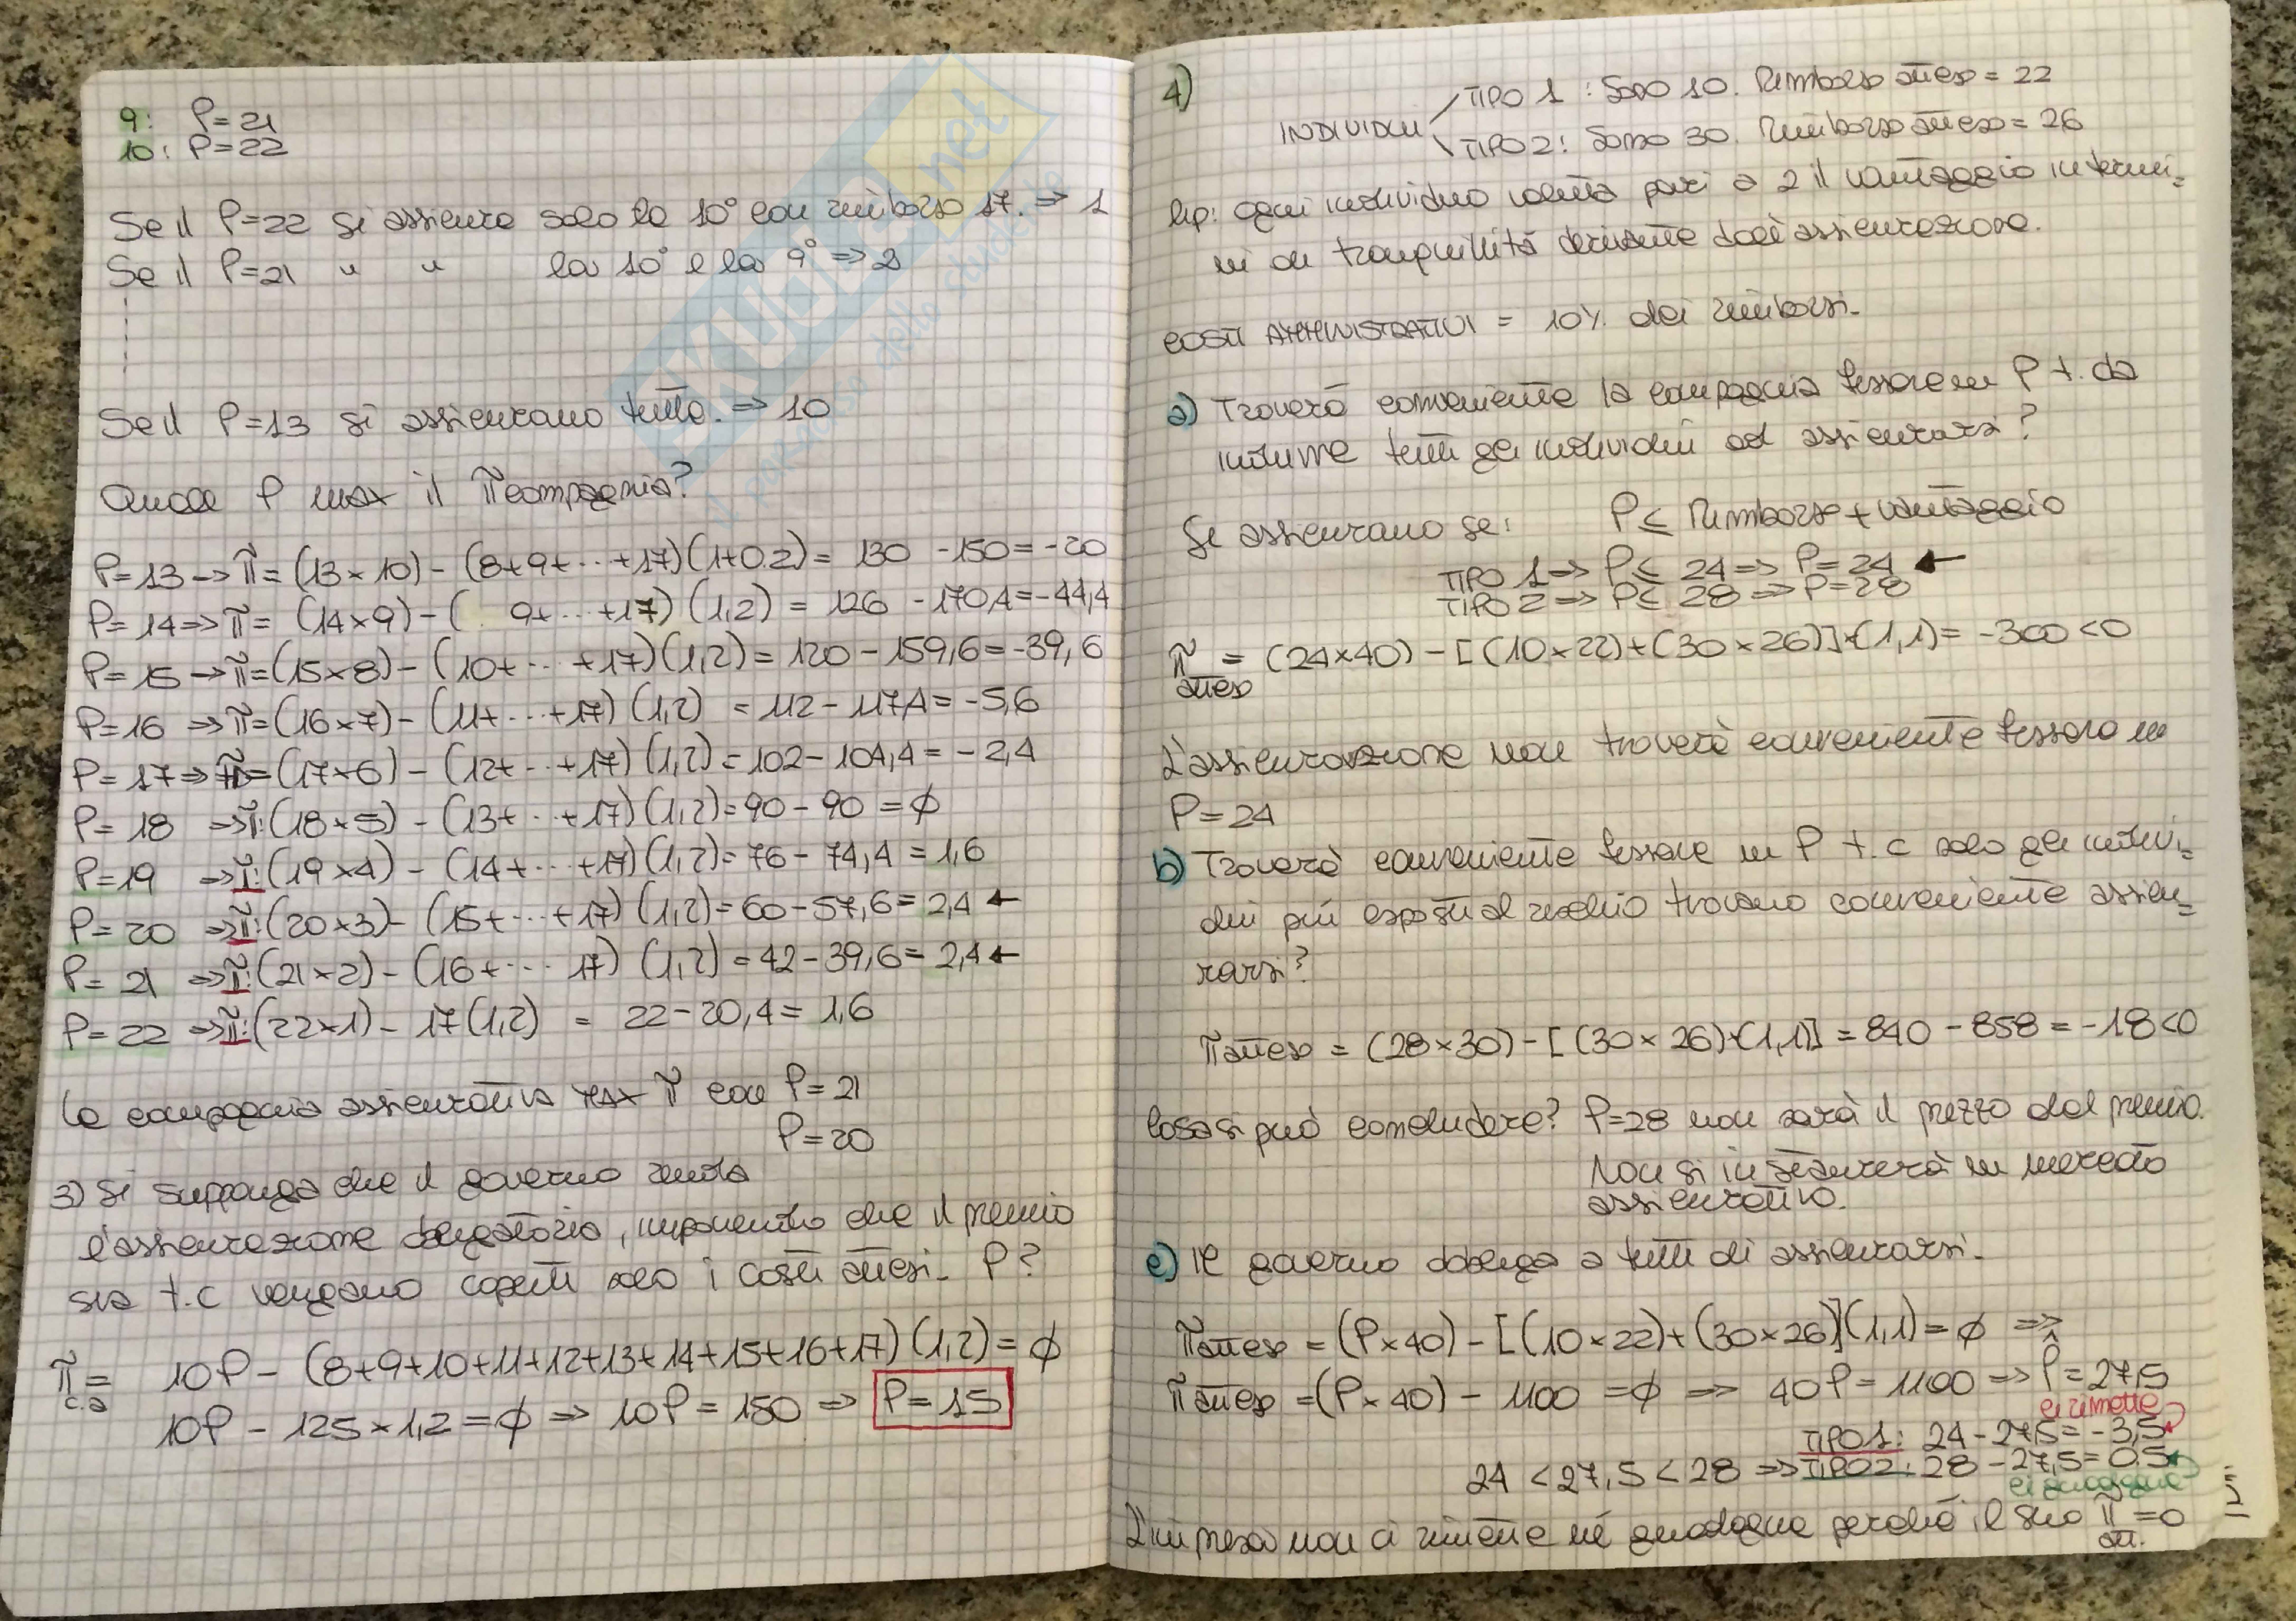 9: P=21
10: P=22
Se il P=22 si assicura solo la 10° con rimborso 17. => 1
Se il P=21 " " la 10° e la 9° => 2
Se il P=13 si assicurano tutte. => 10
Quale P max il π compagnia?
P=13 -> π = (13×10) - (8+9+...+17)(1+0.2) = 130 - 150 = -20
P=14 => π = (14×9) - ( 9+...+17) (1,2) = 126 - 170,4 = -44,4
P=15 -> π = (15×8) - (10+...+17)(1,2) = 120 - 159,6 = -39,6
P=16 => π = (16×7) - (11+...+17) (1,2) = 112 - 117,4 = -5,6
P=17 => π = (17×6) - (12+...+17) (1,2) = 102 - 104,4 = -2,4
P=18 => π: (18×5) - (13+...+17) (1,2) = 90 - 90 = ∅
P=19 => π: (19×4) - (14+...+17)(1,2) = 76 - 74,4 = 1,6
P=20 => π: (20×3) - (15+...+17) (1,2) = 60 - 57,6 = 2,4 ←
P=21 => π: (21×2) - (16+... 17) (1,2) = 42 - 39,6 = 2,4 ←
P=22 => π: (22×1) - 17(1,2) = 22 - 20,4 = 1,6
La compagnia assicurativa max π con P=21
P=20
3) Si supponga che il governo renda
l'assicurazione obbligatoria, imponendo che il premio
sia t.c vengano coperti solo i costi attesi. P?
π = 10P - (8+9+10+11+12+13+14+15+16+17)(1,2) = ∅
c.a
10P - 125×1,2 = ∅ => 10P = 150 => P=15
4)
INDIVIDUI
TIPO 1: Sono 10. Rimborso atteso = 22
TIPO 2: Sono 30. Rimborso atteso = 26
hp: Ogni individuo valuta pari a 2 il vantaggio in termi=
ni di tranquillità derivante dall'assicurazione.
COSTI AMMINISTRATIVI = 10% dei rimborsi.
a) Troverà conveniente la compagnia fissare un P t. da
indurre tutti gli individui ad assicurarsi?
Si assicurano se: P ≤ Rimborso + vantaggio
TIPO 1 => P ≤ 24 => P=24 ←
TIPO 2 => P ≤ 28 => P=28
π = (24×40) - [(10×22)+(30×26)]·(1,1) = -300 <0
atteso
L'assicurazione non troverà conveniente fissare un
P=24
b) Troverà conveniente fissare un P t.c solo gli indivi=
dui più esposti al rischio trovano conveniente assicu=
rarsi?
π atteso = (28×30) - [(30×26)·(1,1)] = 840 - 858 = -18<0
Cosa si può concludere? P=28 non sarà il prezzo del premio.
Non si instaurerà un mercato
assicurativo.
c) Il governo obbliga a tutti di assicurarsi.
π atteso = (P×40) - [(10×22)+(30×26)](1,1) = ∅ =>
π atteso = (P×40) - 1100 = ∅ => 40P = 1100 => P̂ = 27,5
ci rimette
TIPO 1: 24 - 27,5 = -3,5
24 < 27,5 < 28 => TIPO 2: 28 - 27,5 = 0.5
ci guadagna
L'impresa non ci rimette né guadagna perché il suo π =0
att.